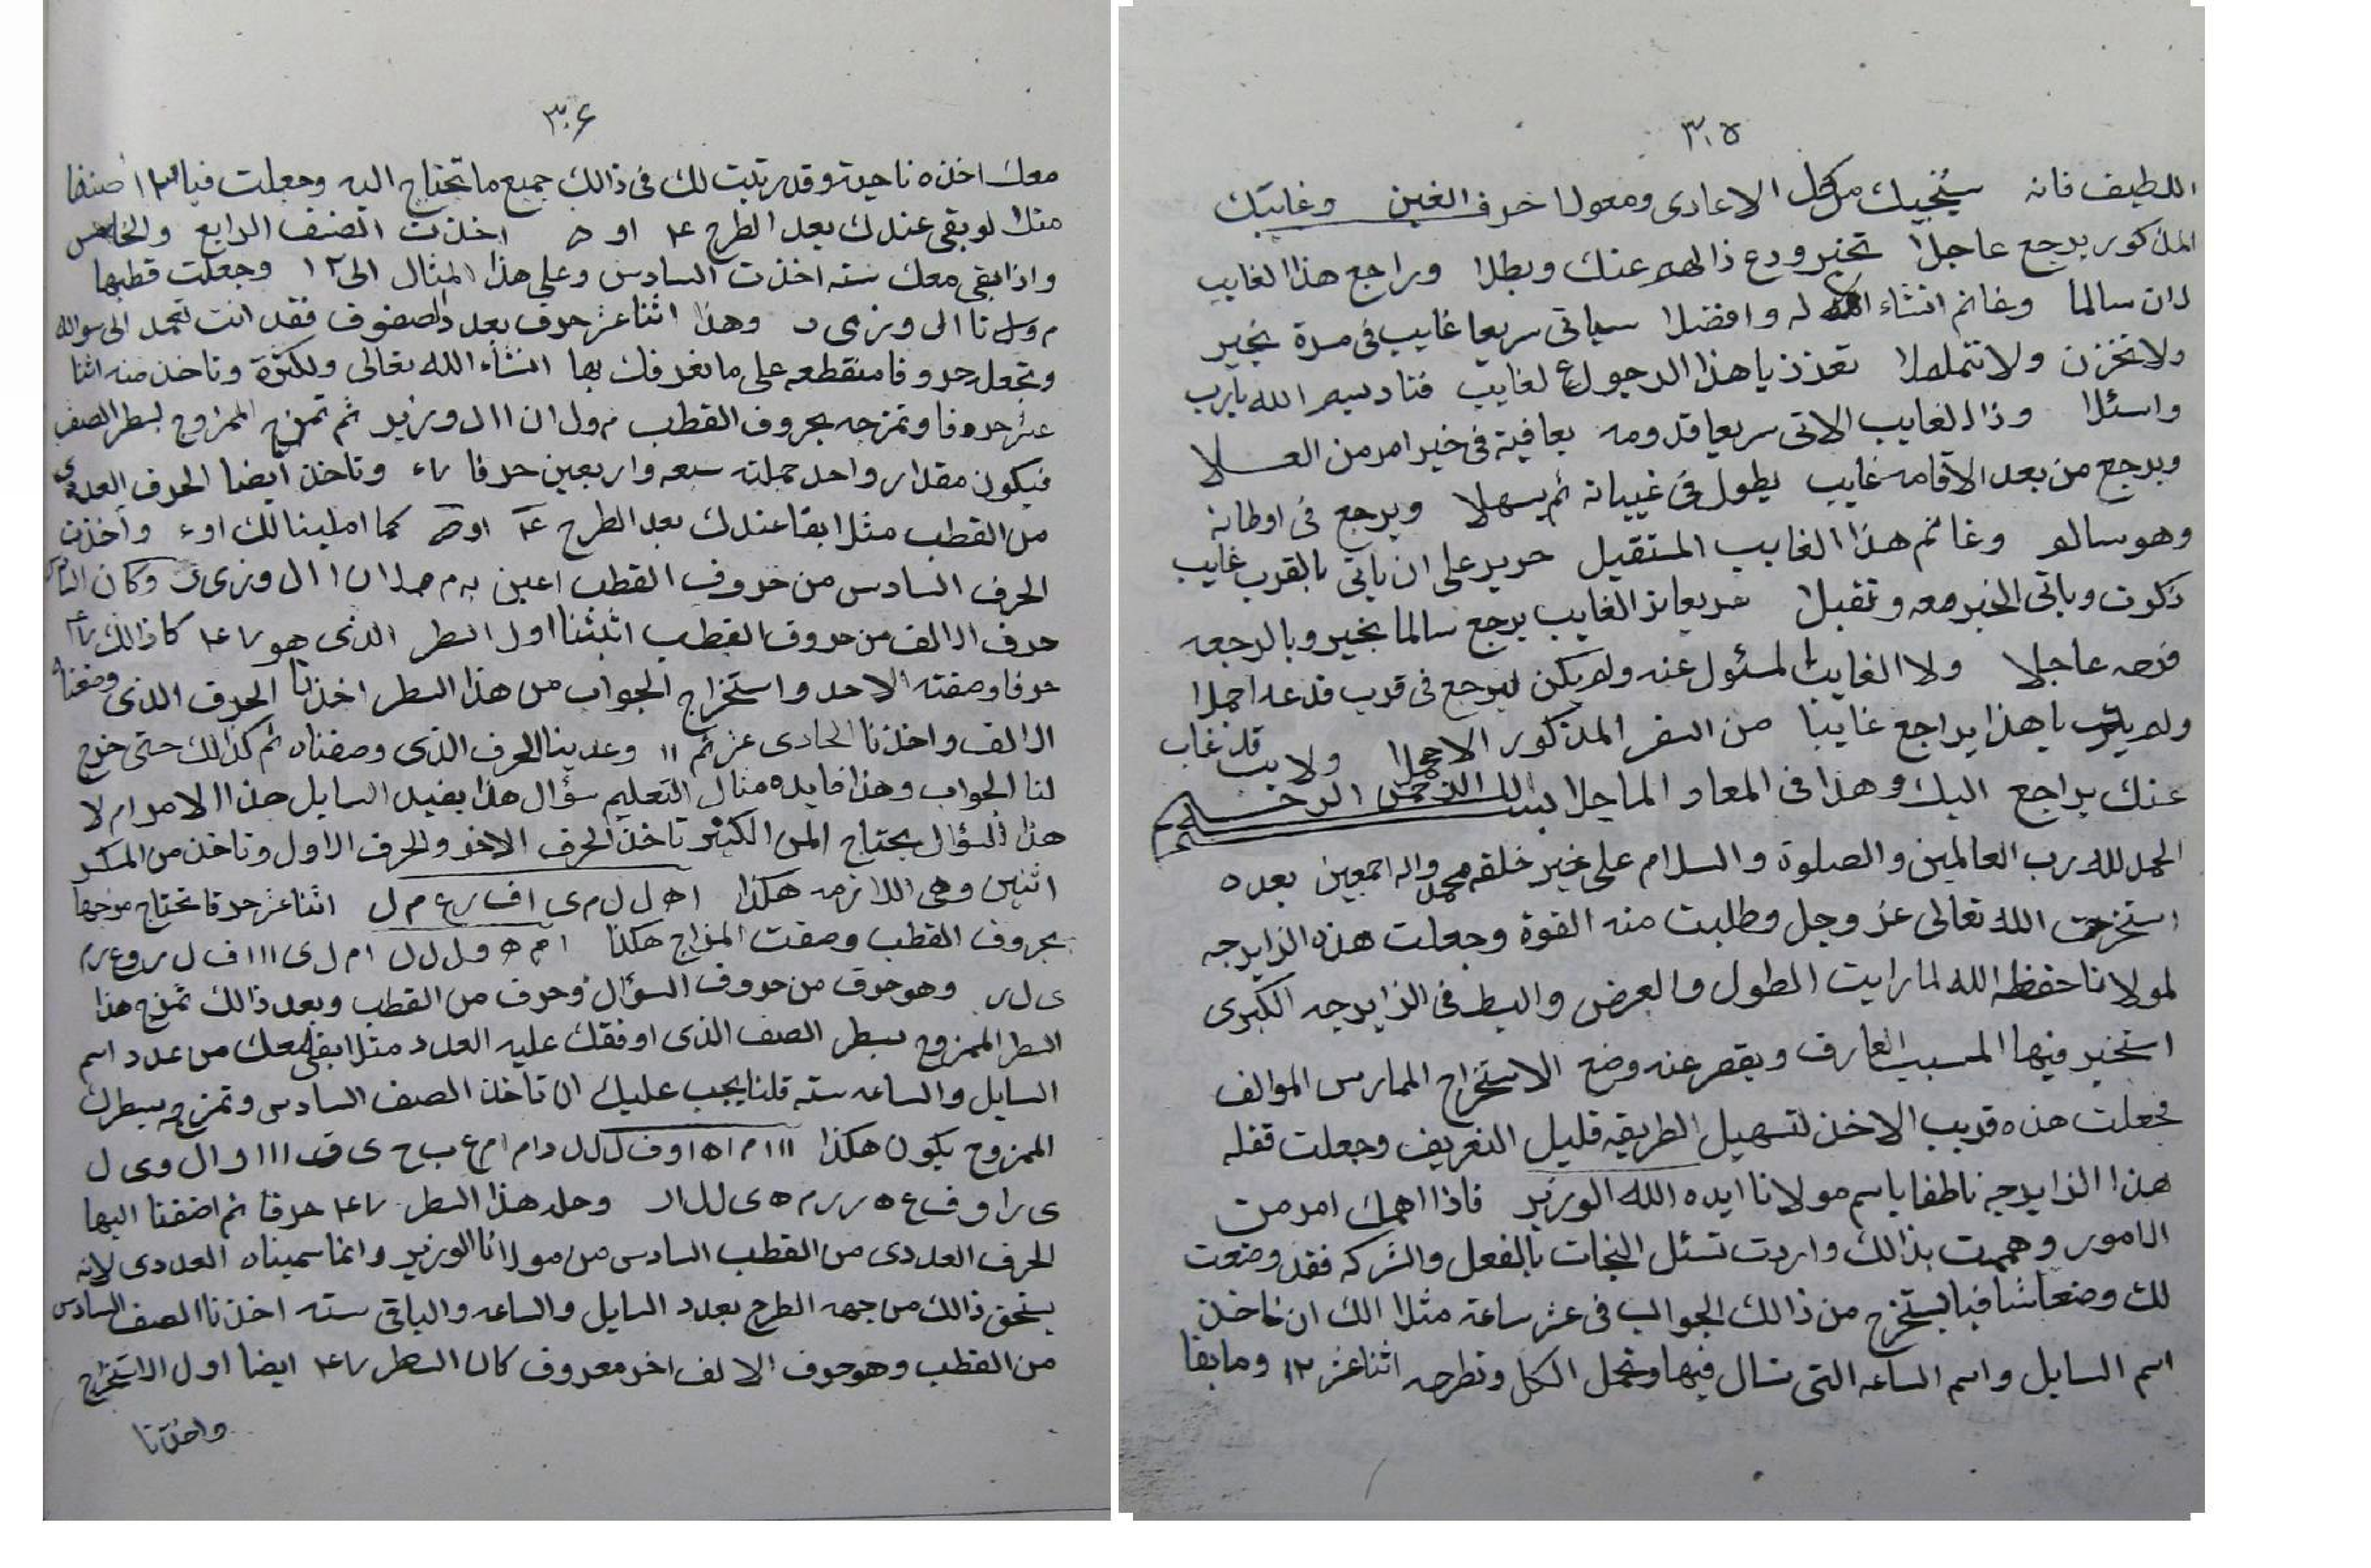 ٣٠٥
اللطيف فانه سينجيك من كل الاعادى ومعولا حرف الغين وغايبك
المذكور يرجع عاجلا تخبر ودع ذا الهم عنك وبطلا وراجع هذا الغايب
ان سالما وغانم انشاء له وافضلا سياتى سريعا غايب فى مدة بخير
ولا تحزن ولا تتململا تعذذ يا هذا الرجوع لغايب فناد بسم الله يارب
واسئلا وذا الغايب الاتى سريعا قدومه بعافية فى خير امر من العلا
ويرجع من بعد الاقامه غايب يطول فى غيباته ثم يسهلا ويرجع فى اوطانه
وهو سالم وغانم هذا الغايب المستقبل حريد على ان ياتى بالقرب غايب
ذكرت وياتى الخبر معه وتقبلا الغايب يرجع سالما بخير وبالرجعه
فرحه عاجلا ولا الغايب المسئول عنه ولم يكن ليرجع فى قرب فدعه اجملا
ولم يا هذا يراجع غايبا من السفر المذكور الا ولا قد غاب
عنك يراجع اليك وهذا فى المعاد الما جلا بسم الله الرحمن الرحيم
الحمد لله رب العالمين والصلوة والسلام على خير خلقه محمد واله اجمعين بعده
استخرت الله تعالى عز وجل وطلبت منه القوة وجعلت هذه الزايرجه
لمولانا حفظه الله لما رايت الطول والعرض والبسط فى الزايرجه الكبرى
استخير فيها المسبب العارف ويقصر عنه وضع الاستخراج الممارس الموالف
فجعلت هذه قريب الاخذ لتسهيل الطريقه قليل التعريف وجعلت قفله
هذا الزايرجه ناطقا باسم مولانا ايده الله الوزير فاذا اهمك امر من
الامور وهممت بذالك واردت تسئل النجات بالفعل والتركه فقد وضعت
لك وضعا شافيا يستخرج من ذالك الجواب فى عشر ساعة مثلا الك ان تاخذ
اسم السايل واسم الساعه التى تسال فيها وتجمل الكل وتطرحه اثنا عشر ١٢ وما بقا
٣٠۶
معك اخذه ناحية وقد رتبت لك فى ذالك جميع ما تحتاج اليه وجعلت فيا ١٢ صنفا
مثلا لو بقى عندك بعد الطرح ٤ او ۵ اخذت الصنف الرابع والخامس
واذا بقى معك سته اخذت السادس وعلى هذا المثال الى ١٢ وجعلت قطبها
م و ل ا ن ا ا ل و ز ى ر وهذا اثنا عشر حرف بعدد الصفوف فقد انت تعمد الى سواله
وتجعل حروفا متقطعه على ما نعرفك بها انشاء الله تعالى ولكثرة وتاخذ منه اثنا
عشر حروفا وتمزجه بحروف القطب م و ل ا ن ا ا ل و ز ي ر ثم تمزج الممزوج بسطر الصف
فيكون مقدار واحد جملته سبعه واربعين حرفا وتاخذ ايضا الحرف العددى
من القطب مثلا بقا عندك بعد الطرح ٤ او ۵ كما املينا لك او واخذت
الحرف السادس من حروف القطب اعين به م و ل ا ن ا ا ل و ز ى ر وكان
حرف الالف من حروف القطب اثبتنا اول السطر الذى هو كان ذالك
حرفا وصفته الاحد واستخراج الجواب من هذا السطر اخذنا الحرف الذى وضعناه
الالف واخذنا الحادى عشر ثم ١١ وعدينا الحرف الذى وصفناه ثم كذالك حتى خرج
لنا الجواب وهذا فايده مثال التعليم سؤال هذا يفيد السايل هذا الامر ام لا
هذا السؤال يحتاج المن الكثير تاخذ الحرف الاخر والحرف الاول وتاخذ من
اثنين وهى اللازمه هكذا ا ه ل ل م ى ا ف ا ر ع م ل اثنا عشر حرفا تحتاج مزجها
بحروف القطب وصفت المزاج هكذا ا م ه و ل ل ل ا م ل ى ا ا ا ف ل ر و ع ز م
ى ل ر وهو حرف من حروف السؤال وحرف من القطب وبعد ذالك تمزج هذا
السطر الممزوج بسطر الصف الذى اوفقك عليه العدد مثلا بقى معك من عدد اسم
السايل والساعه سته قلنا يجب عليك ان تاخذ الصف السادس وتمزجه بسطرك
الممزوج يكون هكذا
وجلد هذا السطر حرفا ثم اضفنا اليها
الحرف العددى من القطب السادس من مولانا الوزير وانما سميناه العددى لانه
يستحق ذالك من جهه الطرح بعدد السايل والساعه والباقى سته اخذنا الصف السادس
من القطب وهو حرف الالف اخر معروف كان السطر ايضا اول الاستخراج
واخذنا